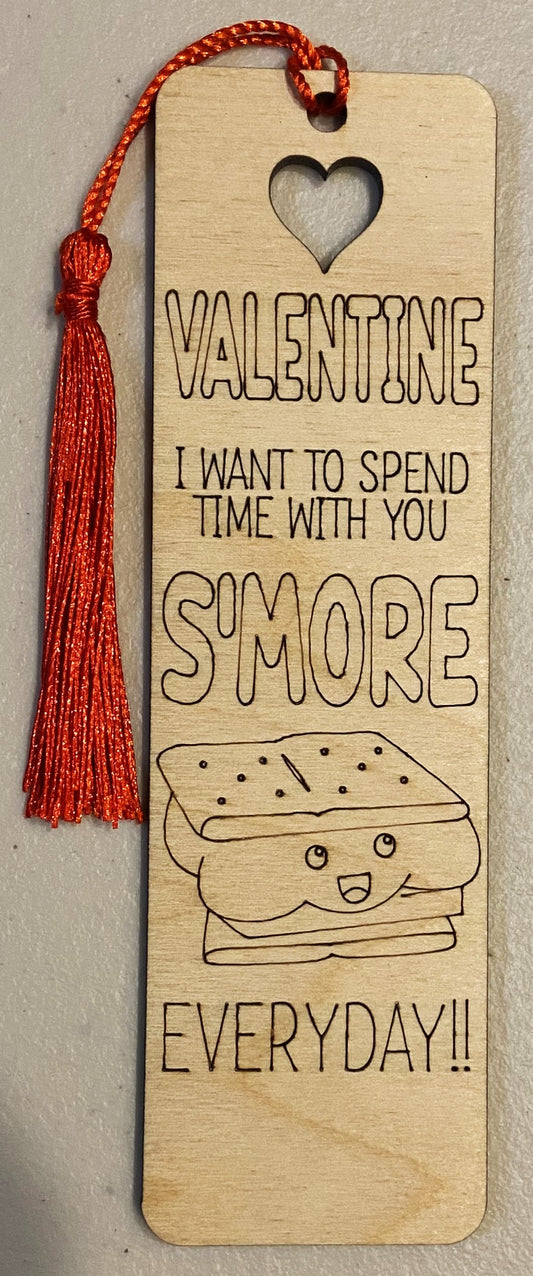 VALENTINE
I WANT TO SPEND
TIME WITH YOU
S'MORE
EVERYDAY!!